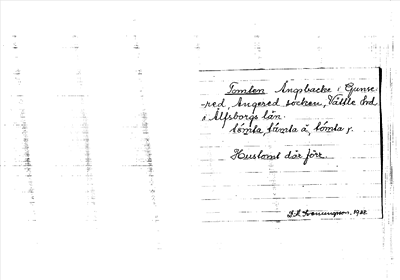 Tomten Ängsbacke i Gunse-
red, Angered socken, Vättle hd
i Älfsborgs län.
tòmta, tòmta å, tòmta r.
Hustomt där förr.
1922